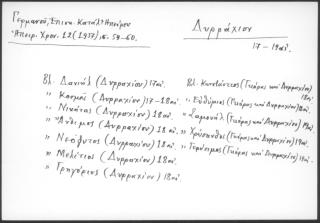 Γερμανοῦ, Ἐπισκ. Κατάλ. Ἠπείρου
Ἠπειρ. Χρον. 12 (1937), σ. 54-60.
Δυρράχιον
17 - 19αἰ.
Βλ. Δανιήλ (Δυρραχίου) 17αἰ.
" Κοσμᾶς (Δυρραχίου) 17-18αἰ.
" Νικήτας (Δυρραχίου) 18αἰ.
" Ἄνθιμος (Δυρραχίου) 18αἰ.
" Νεόφυτος (Δυρραχίου) 18αἰ.
" Μελέτιος (Δυρραχίου) 18αἰ.
" Γρηγόριος (Δυρραχίου) 18αἰ.
Βλ. Κωνστάντιος (Γκόρας καί Δυρραχίου)
18αἰ.
" Εὐθύμιος (Γκόρας καί Δυρραχίου) 18αἰ.
" Σαμουήλ (Γκόρας καί Δυρραχίου) 19αἰ.
" Χρύσανθος (Γκόρας καί Δυρραχίου) 19αἰ.
" Γεράσιμος (Γκόρας καί Δυρραχίου) 19αἰ.